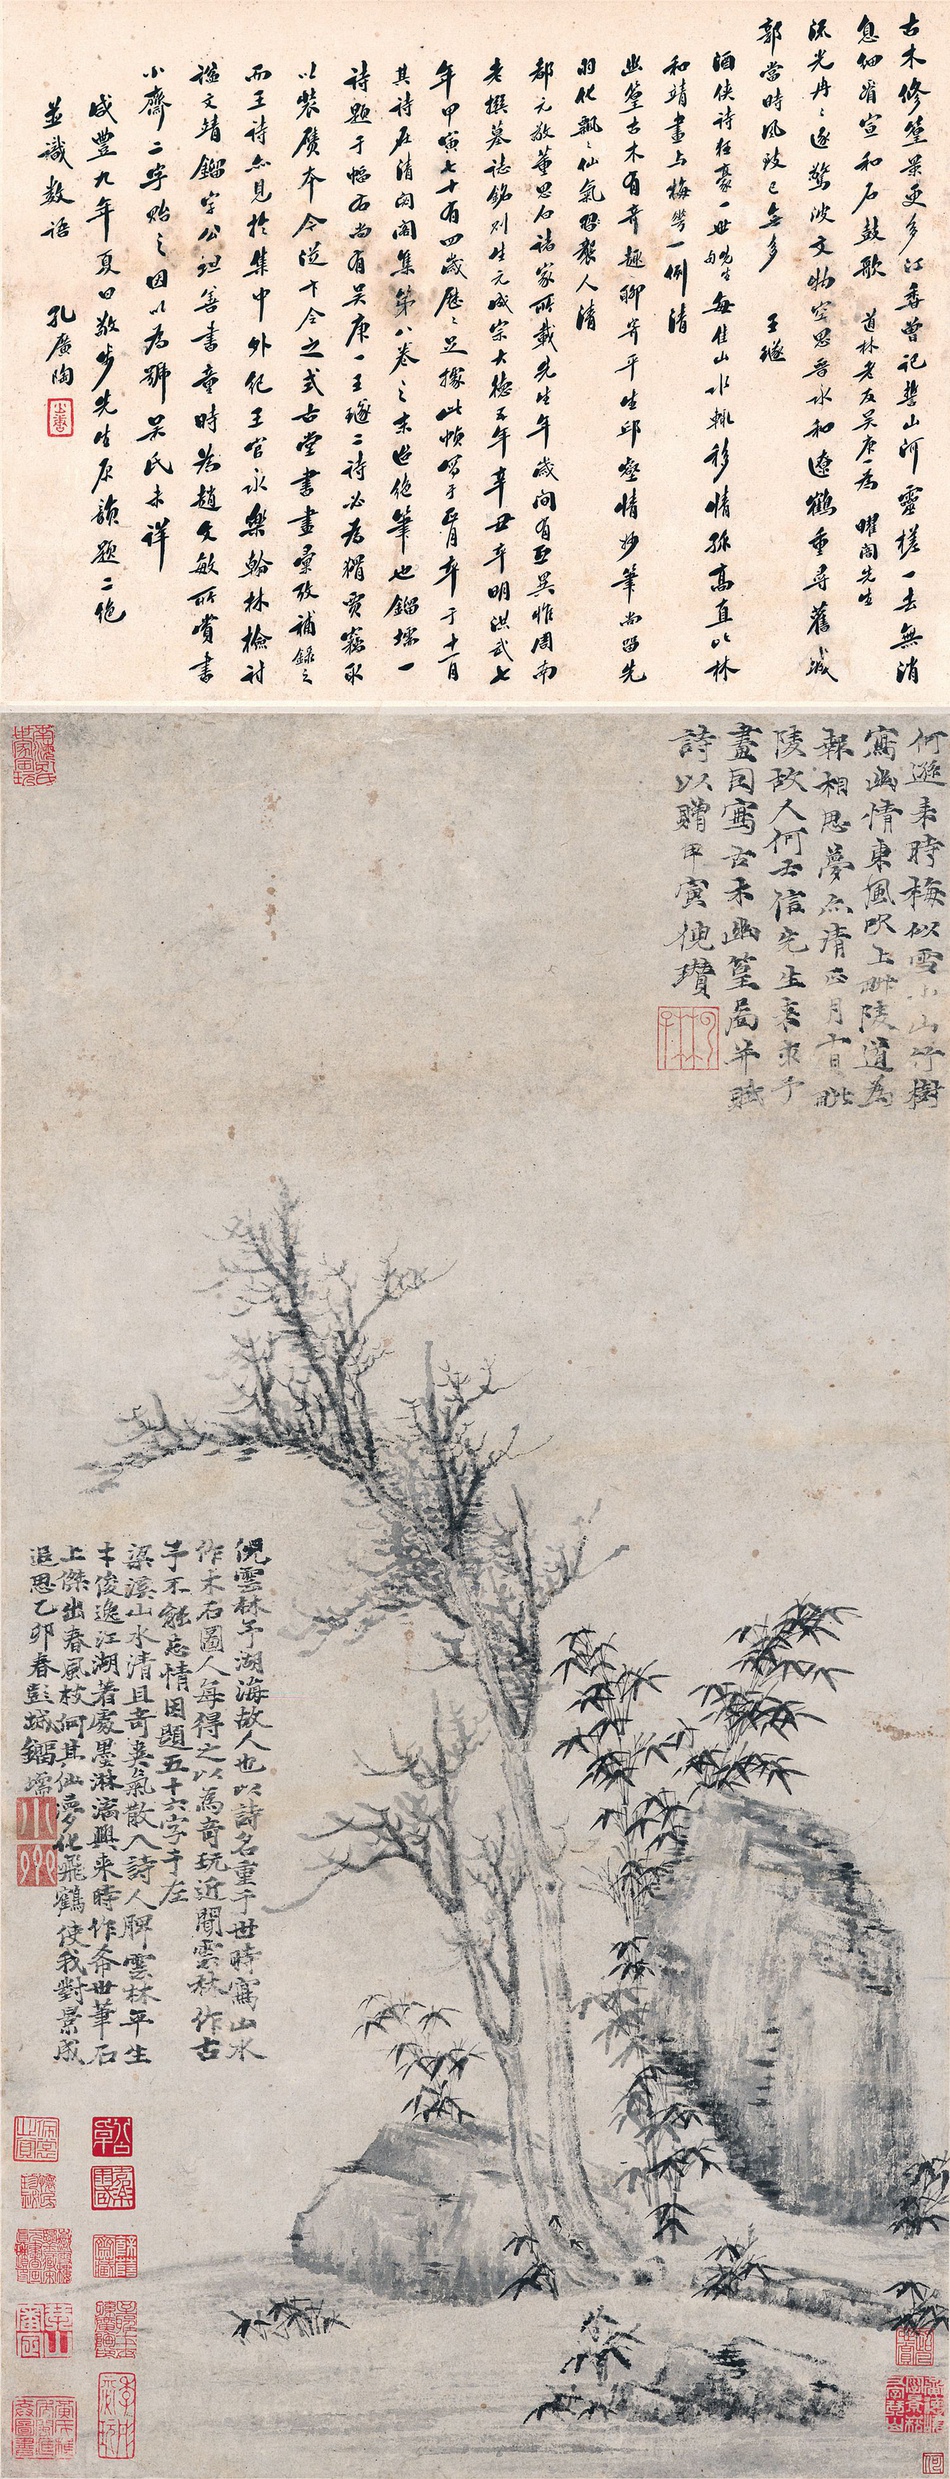 古木修篁景更多江香曾記誓山河靈槎一去無消
息細省宣和石鼓歌 道林老友吳庚一為 曜阁先生
流光冉々逐驚波文物空思吾永和遼鶴重尋舊城
郭當時風致已無多 王璲
酒俠詩狂豪一世先生每住山水輒移情孫高直以林
和靖畫与梅花一例清
幽篁古木有奇趣聊寄平生邱壑情妙筆尚留先
羽化飄々仙氣習襲人清
都元敬董思白諸家所載先生年歲間有互異惟周南
老撰墓誌銘則生元成宗大德五年辛丑卒明洪武七
年甲寅七十有四歲歷々足據此幀寫于正月卒于十一月
其詩在清閟閣集第八卷之末迨絕筆也鎦堧一
詩題于幅右尚有吳庚一王璲二詩必為猾賈竊取
以裝贋本今從卞令之式古堂書畫彙攷補錄之
而王詩亦見於集中外紀王官永樂翰林檢討
謚文靖鎦字公坦善書童時為趙文敏所賞書
小齋二字貽之因以為號吳氏未詳
咸豐九年夏日敬步先生原韻題二絕
並識數語 孔廣陶
何遜來時梅似雪小山竹樹
寫幽情東風吹上毗陵道為
報相思夢亦清正月十日毗
陵故人何士信先生來求予
畫因寫古木幽篁局并賦
詩以贈甲寅倪瓚
倪雲林予湖海故人也以詩名重于世時寫山水
作木石圖人每得之以為奇玩近聞雲林作古
予不能忘情因題五十六字于左
梁溪山水清且奇英氣散入詩人脾雲林年生
本俊逸江湖著處墨淋漓興來時作希世筆石
上傑出春風枝何其仙夢化飛鶴使我對景成
追思乙卯春彭城鎦堧